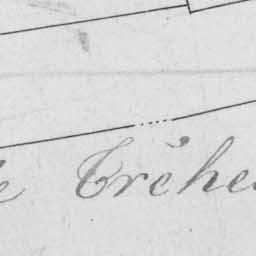 e Tréhe